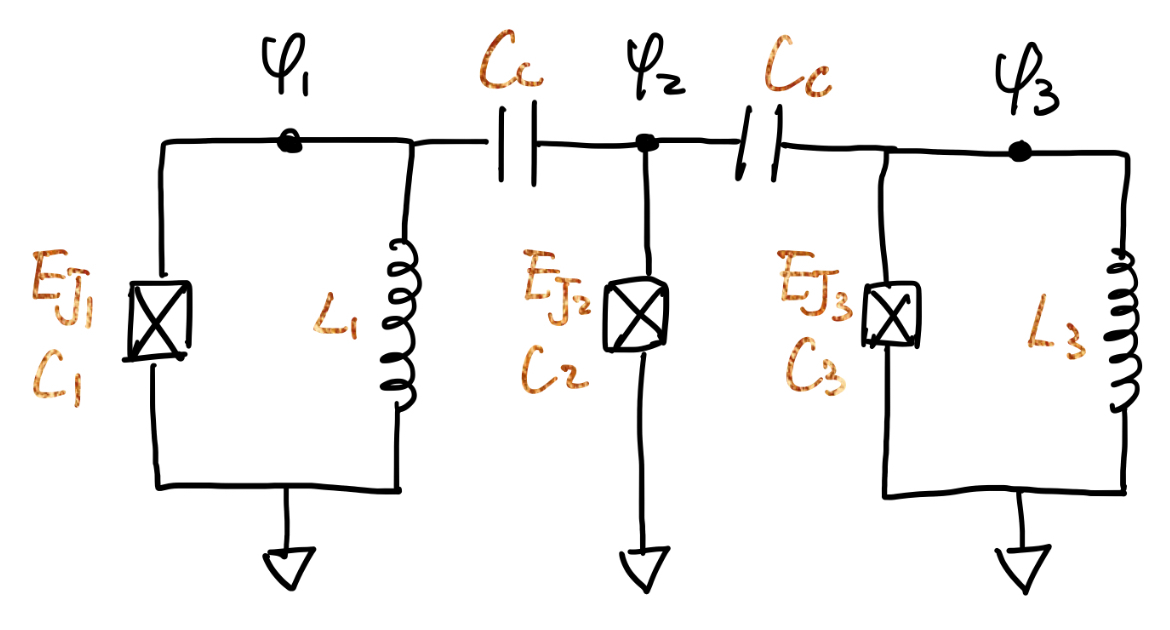 φ₁
C_C
φ₂
C_C
φ₃
E_J₁
C₁
L₁
E_J₂
C₂
E_J₃
C₃
L₃